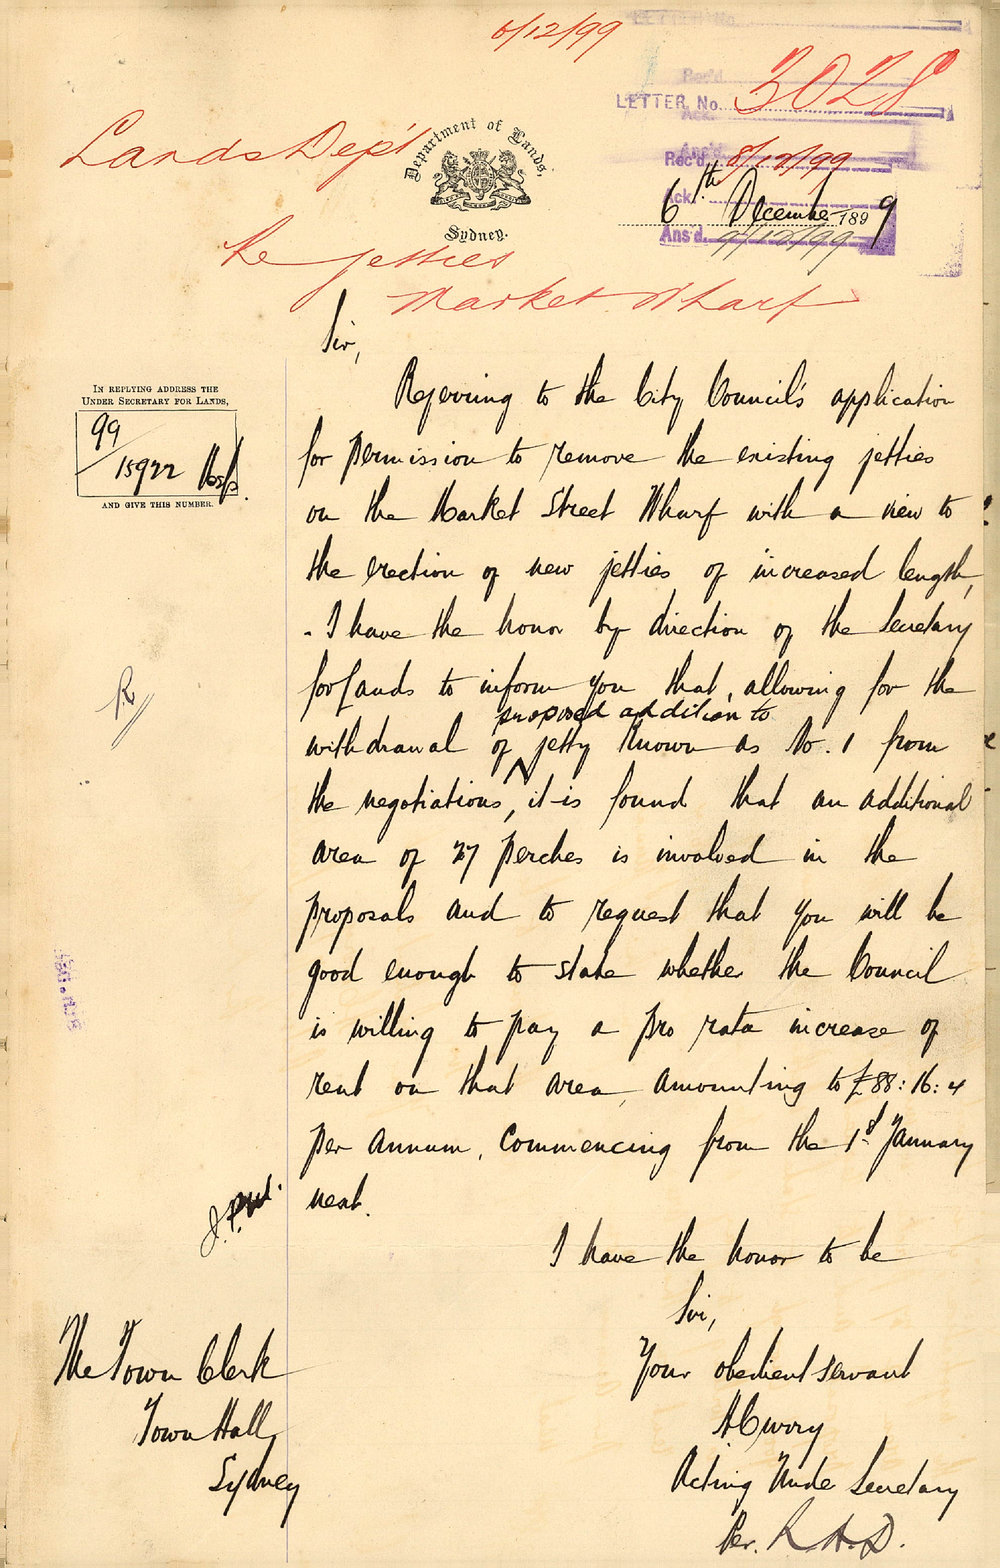 6/12/99
LETTER No. 3028
Lands Dep't
Department of Lands,
Sydney.
Rec'd. 8/12/99
Ack.
6th December 1899
Ans'd. 9/12/99
Re jetties
Market Wharf
Sir,
IN REPLYING ADDRESS THE
UNDER SECRETARY FOR LANDS,
99/15922
AND GIVE THIS NUMBER.
Referring to the City Council's application
for permission to remove the existing jetties
on the Market Street Wharf with a view to
the erection of new jetties of increased length,
- I have the honor by direction of the Secretary
for Lands to inform you that, allowing for the
proposed addition to
withdrawal of ^ jetty known as No. 1 from
the negotiations, it is found that an additional
area of 27 perches is involved in the
proposals and to request that you will be
good enough to state whether the Council
is willing to pay a pro rata increase of
rent on that area, amounting to £88:16:4
per annum, commencing from the 1st January
next.
I have the honor to be
Sir,
Your obedient servant
Acting Under Secretary
Per.
The Town Clerk
Town Hall,
Sydney